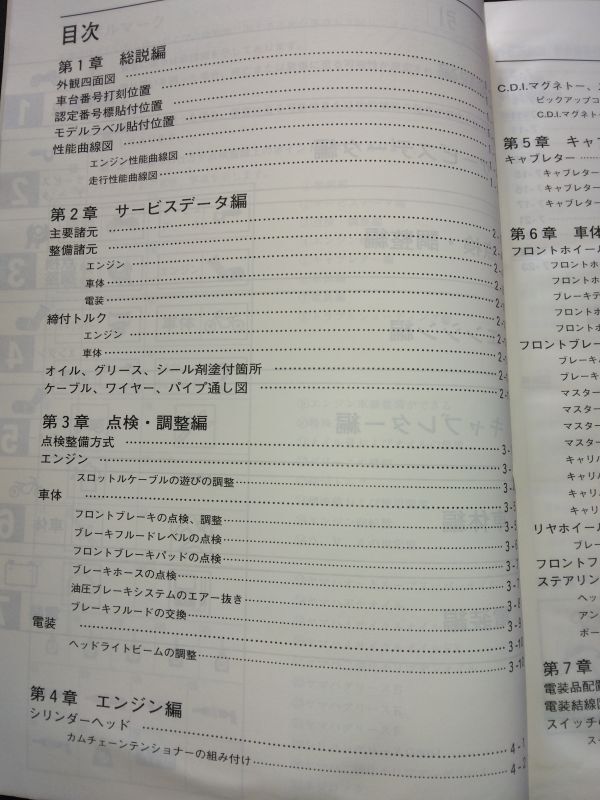 目次
第1章 総説編
外観四面図
車台番号打刻位置
認定番号標貼付位置
モデルラベル貼付位置
性能曲線図
エンジン性能曲線図
走行性能曲線図
第2章 サービスデータ編
主要諸元 2-
整備諸元 2-
エンジン 2-
車体 2-
電装 2-
締付トルク 2-
エンジン 2-
車体 2-
オイル、グリース、シール剤塗付箇所 2-
ケーブル、ワイヤー、パイプ通し図 2-
第3章 点検・調整編
点検整備方式 3-
エンジン 3-
スロットルケーブルの遊びの調整 3-
車体 3-
フロントブレーキの点検、調整 3-
ブレーキフルードレベルの点検 3-
フロントブレーキパッドの点検 3-7
ブレーキホースの点検 3-7
油圧ブレーキシステムのエアー抜き 3-8
ブレーキフルードの交換 3-9
電装 3-10
ヘッドライトビームの調整 3-10
第4章 エンジン編
シリンダーヘッド 4-1
カムチェーンテンショナーの組み付け 4-2
C.D.I.マグネトー、
ピックアップコ
C.D.I.マグネト
第5章 キャブ
キャブレター
キャブレター
キャブレター
キャブレター
第6章 車体
フロントホイール
フロントホ
フロントホ
ブレーキデ
フロントホ
フロントホ
フロントブレー
ブレーキパ
ブレーキ
マスター
マスター
マスター
マスター
キャリパ
キャリパ
キャリ
キャリ
リヤホイール
ブレー
フロントフ
ステアリン
ヘッ
アン
ボー
第7章
電装品配置
電装結線図
スイッチ